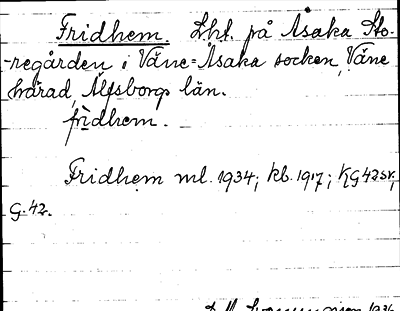 Fridhem. Lht. på Åsaka Sto-
regården i Väne-Åsaka socken, Väne
härad, Älfsborgs län.
frìdhem.
Fridhem ml. 1934; kb. 1917; KG42sv,
G.42.